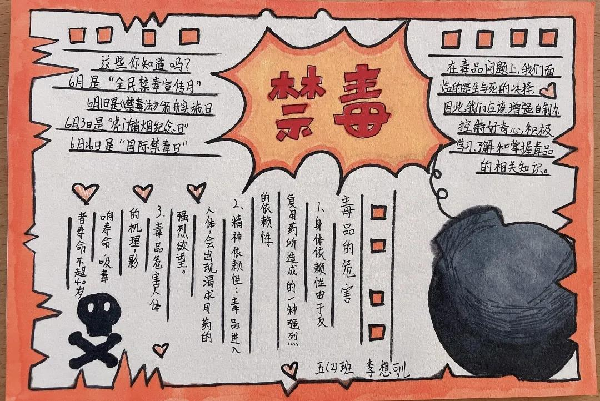 禁毒
这些你知道吗?
6月是“全民禁毒宣传月”
6月1日是《禁毒法》颁布实施日
6月3日是“虎门销烟纪念日”
6月26日是“国际禁毒日”
在毒品问题上,我们面
临的是生与死的抉择
因此我们应该增强自制力
控制好奇心积极
学习、了解和掌握毒品
的相关知识。
毒品的危害
1、身体依赖性由于反
复用药所造成的一种强烈
的依赖性
2、精神依赖性:毒品进入
人体会出现渴求用药的
强烈欲望。
3、毒品危害人体
的机理:影
响寿命 吸毒
者寿命不超40岁
五(2)班 李想